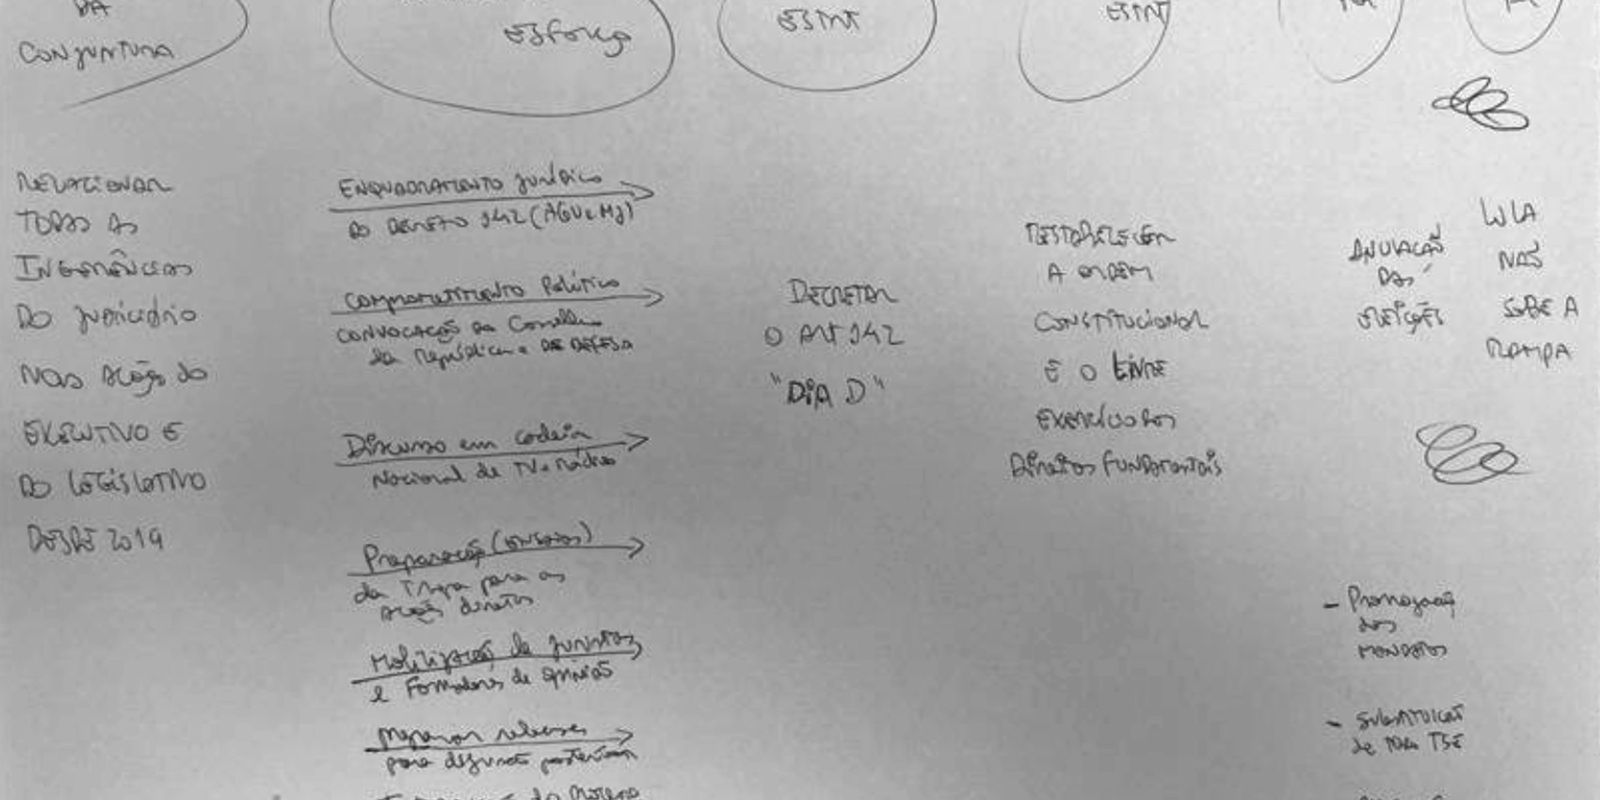 DA
CONJUNTURA
ESFORÇO
RELACIONAR
TODAS AS
INGERÊNCIAS
DO JUDICIÁRIO
NAS AÇÕES DO
EXECUTIVO E
DO LEGISLATIVO
DESDE 2019
ENQUADRAMENTO JURÍDICO
DO DECRETO 142 (AGU e MJ)
COMPROMETIMENTO POLÍTICO
CONVOCAÇÃO do Conselho
da República e DE DEFESA
Discurso em cadeia
Nacional de TV e rádio
Preparação (ENSAIOS)
da Tropa para as
AÇÕES diretas
Mobilização de juristas
e Formadores de opinião
preparar
para
DECRETAR
O ART 142
"DIA D"
RESTABELECER
A ORDEM
CONSTITUCIONAL
E O LIVRE
EXERCÍCIO DOS
DIREITOS FUNDAMENTAIS
ANULAÇÃO
DAS
ELEIÇÕES
LULA
NÃO
SOBE A
RAMPA
- Prorrogação
dos
MANDATOS
- SUBSTITUIÇÃO
de TSE